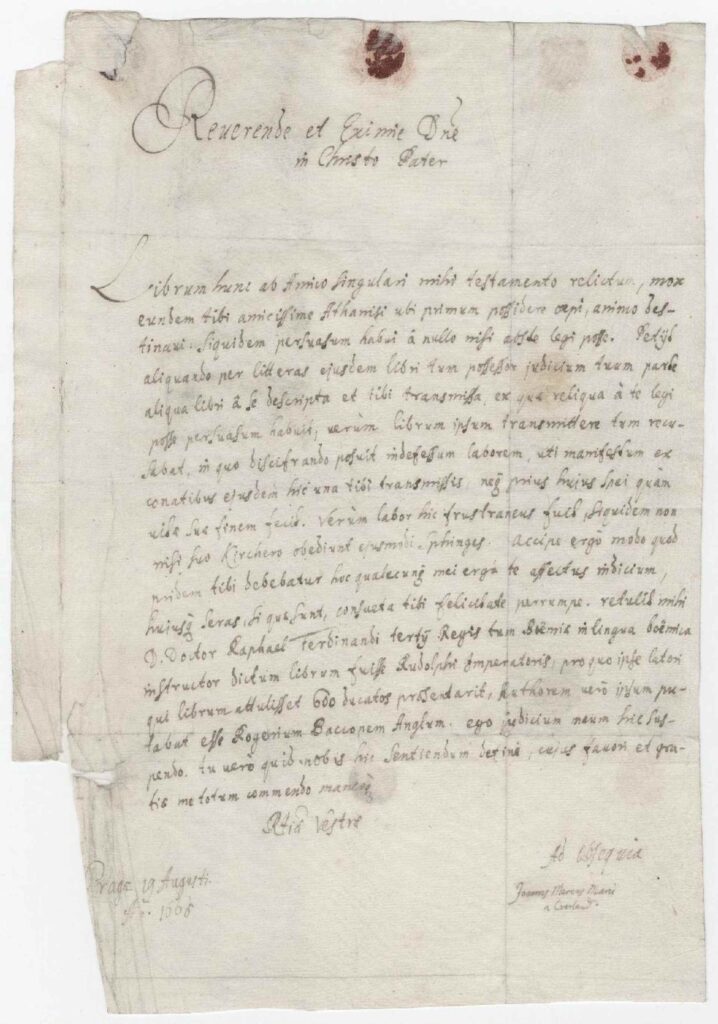 Reverende et Eximie Dne
in Christo Pater
Librum hunc ab Amico singulari mihi testamento relictum, mox
eundem tibi amicissime Athanasi uti primum possidere coepi, animo des-
tinavi. siquidem persuasum habui à nullo nisi abs te legi posse. Petijt
aliquando per litteras ejusdem libri tum possessor judicium tuum parte
aliqua libri à se descripta et tibi transmissa, ex qua reliqua à te legi
posse persuasum habuit; verùm librum ipsum transmittere tum recu-
sabat, in quo discifrando posuit indefessum laborem, uti manifestum ex
conatibus ejusdem hic una tibi transmissis, neq prius hujus spei quàm
vitae suae finem fecit. verùm labor hic frustraneus fuit, siquidem non
nisi suo Kirchero obediunt ejusmodi sphinges. Accipe ergò modo quod
pridem tibi debebatur hoc qualecunq mei ergà te affectus indicium,
hujusq seras, si quae sunt, consueta tibi felicitate perrumpe. retulit mihi
D. Doctor Raphael Ferdinandi tertij Regis tum Boemiae in lingua boemica
instructor dictum librum fuisse Rudolphi Imperatoris, pro quo ipse latori
qui librum attulisset 600 ducatos praesentarit, Authorem verò ipsum pu-
tabat esse Rogerium Bacconem Anglum. ego judicium meum hic sus-
pendo. tu verò quid nobis hic sentiendum defini, cujus favori et gra-
tiae me totum commendo maneoq
Rtiae Vestrae
Ad Obsequia
Joannes Marcus Marci
a Cronland
Pragae 19 Augusti